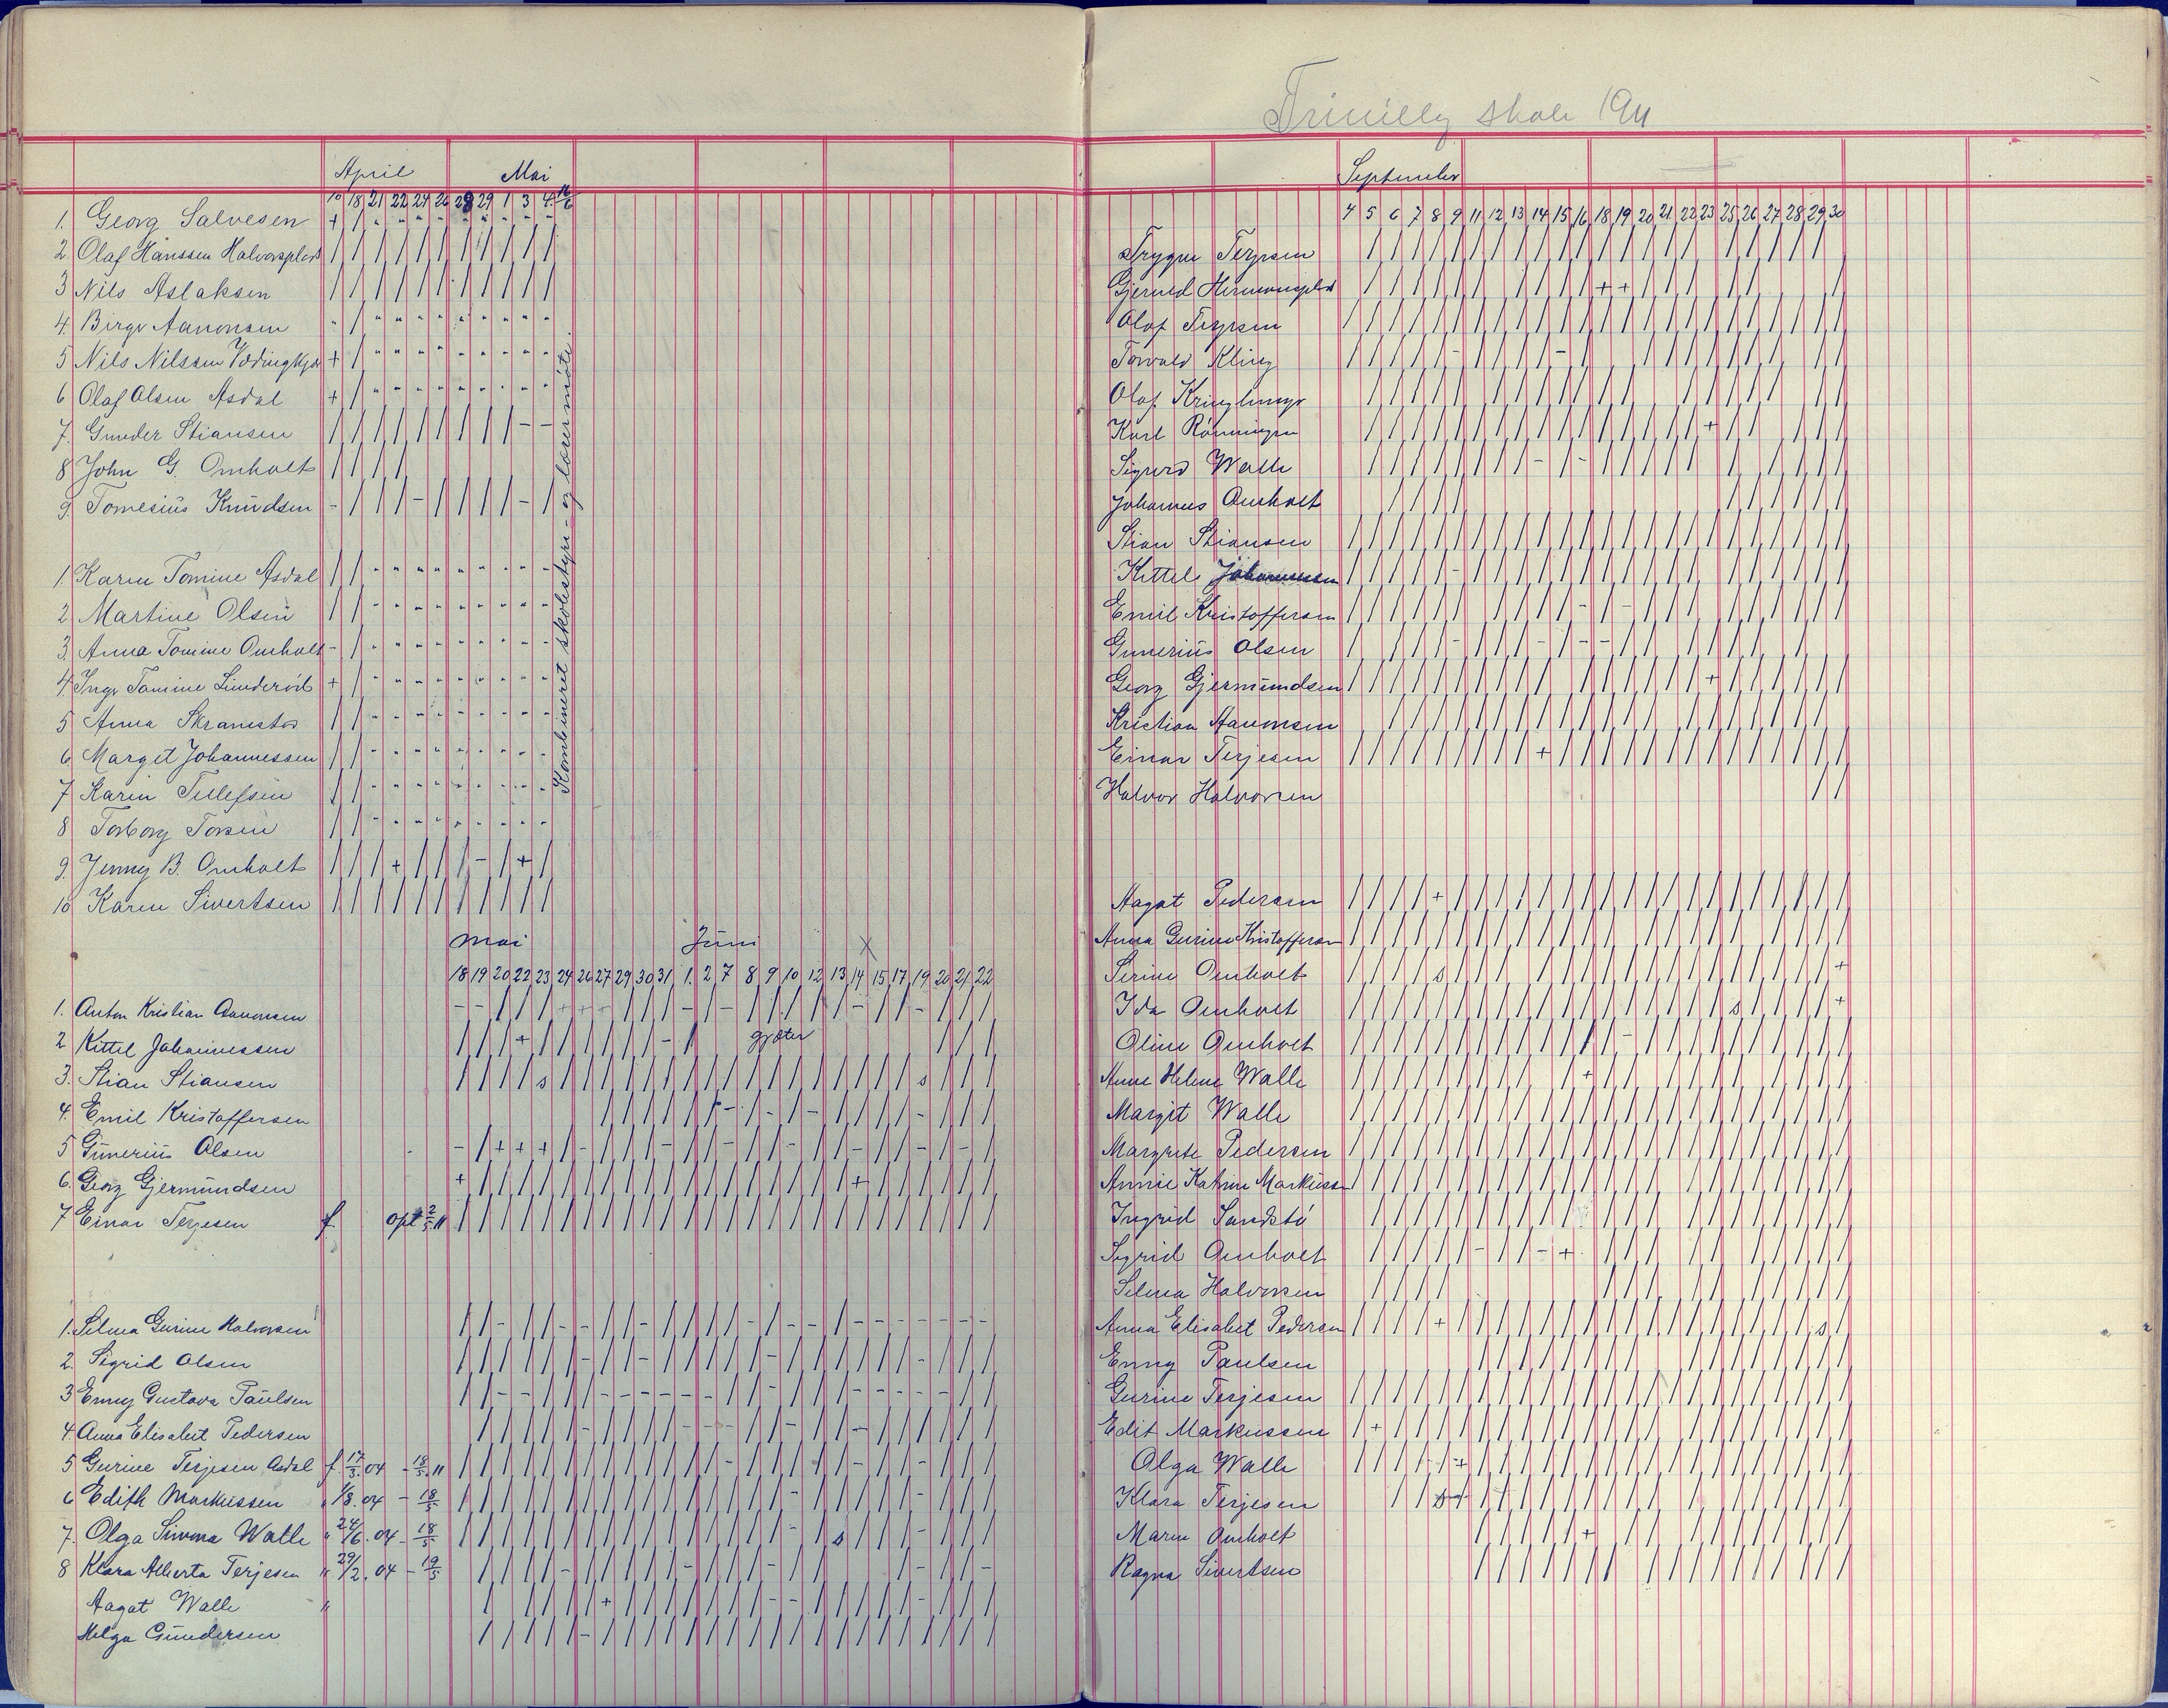 April Mai
10 18 21 22 24 26 28 29 1 3 4
1. Georg Salvesen
2 Olaf Hanssen Halvorsplads
3 Nils Aslaksen
4. Birger Aanonsen
5 Nils Nilssen
6 Olaf Olsen Asdal
7. Gunder Stiansen
8 John G. Omholt
9. Tomesius Knudsen
Kombineret skolestyre- og lærermøte.
1 Karen Tomine Asdal
2 Martine Olsen
3. Anna Tomine Omholt
4. Inga Tomine Lunderød
5 Anna Skramstad
6 Margit Johannessen
7 Karen Tellefsen
8 Torborg Torsen
9. Jenny B. Omholt
10 Karen Sivertsen
Mai Juni X
18 19 20 22 23 24 26 27 29 30 31 1. 2 7 8 9 10 12 13 14 15 17 19 20 21 22
1. Anton Kristian Aanonsen
2 Kittel Johannessen gjæter
3. Stian Stiansen s s
4. Emil Kristoffersen
5 Gunerius Olsen
6. Georg Gjermundsen
7 Einar Terjesen f. opt 2/5.11
1. Selma Gurine Halvorsen
2. Sigrid Olsen
3 Enny Gustava Paulsen
4. Anna Elisabet Pedersen
5 Gurine Terjesen Asdal f. 17/3.04 - 18/5.11
6 Edith Markussen " 1/8.04 - 18/5
7. Olga Simma Walle " 24/6.04 - 18/5 s
8 Klara Alberta Terjesen " 29/2.04 - 19/5
Aagat Walle "
Helga Gundersen
skole 1911
September
4 5 6 7 8 9 11 12 13 14 15 16 18 19 20 21 22 23 25 26 27 28 29 30
Trygve Terjesen
Gjerulf Hermansplads
Olaf Terjesen
Torvald Kling
Olaf Kringlemyr
Karl Rønningen
Sigurd Walle
Johannes Omholt
Stian Stiansen
Kittel Johannessen
Emil Kristoffersen
Gunerius Olsen
Georg Gjermundsen
Kristian Aanonsen
Einar Terjesen
Halvor Halvorsen
Aagot Pedersen
Anna Gurine Kristoffersen
Serine Omholt s
Ida Omholt s
Oline Omholt
Anne Helene Walle
Margit Walle
Margrete Pedersen
Annie Katrine Markussen
Ingrid Sandstø
Sigrid Omholt
Selma Halvorsen
Anna Elisabet Pedersen s
Enny Paulsen
Gurine Terjesen
Edit Markussen
Olga Walle
Klara Terjesen
Maren Omholt
Ragna Sivertsen